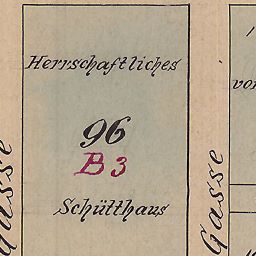 Herrschaftliches
96
B 3
Schütthaus
Gasse
Gasse